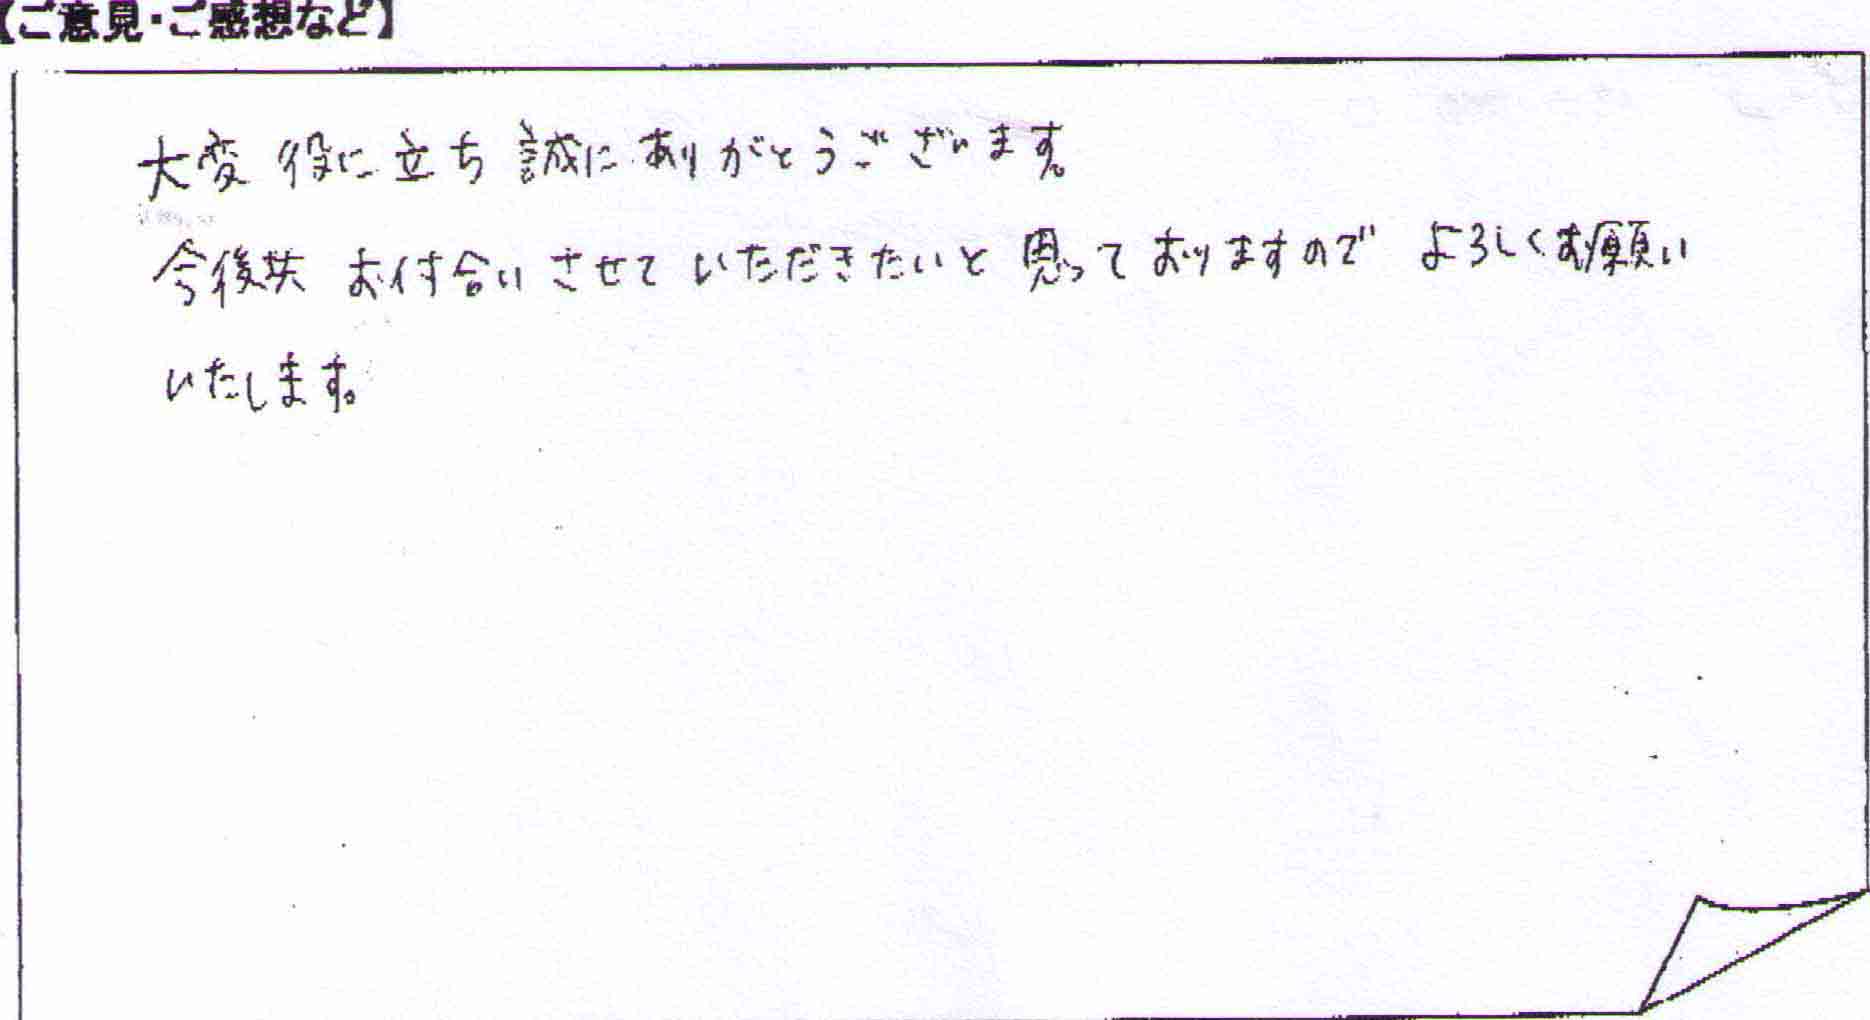 【ご意見・ご感想など】
大変 役に立ち 誠にありがとうございます。
今後共 お付合いさせていただきたいと思っておりますので よろしくお願い
いたします。